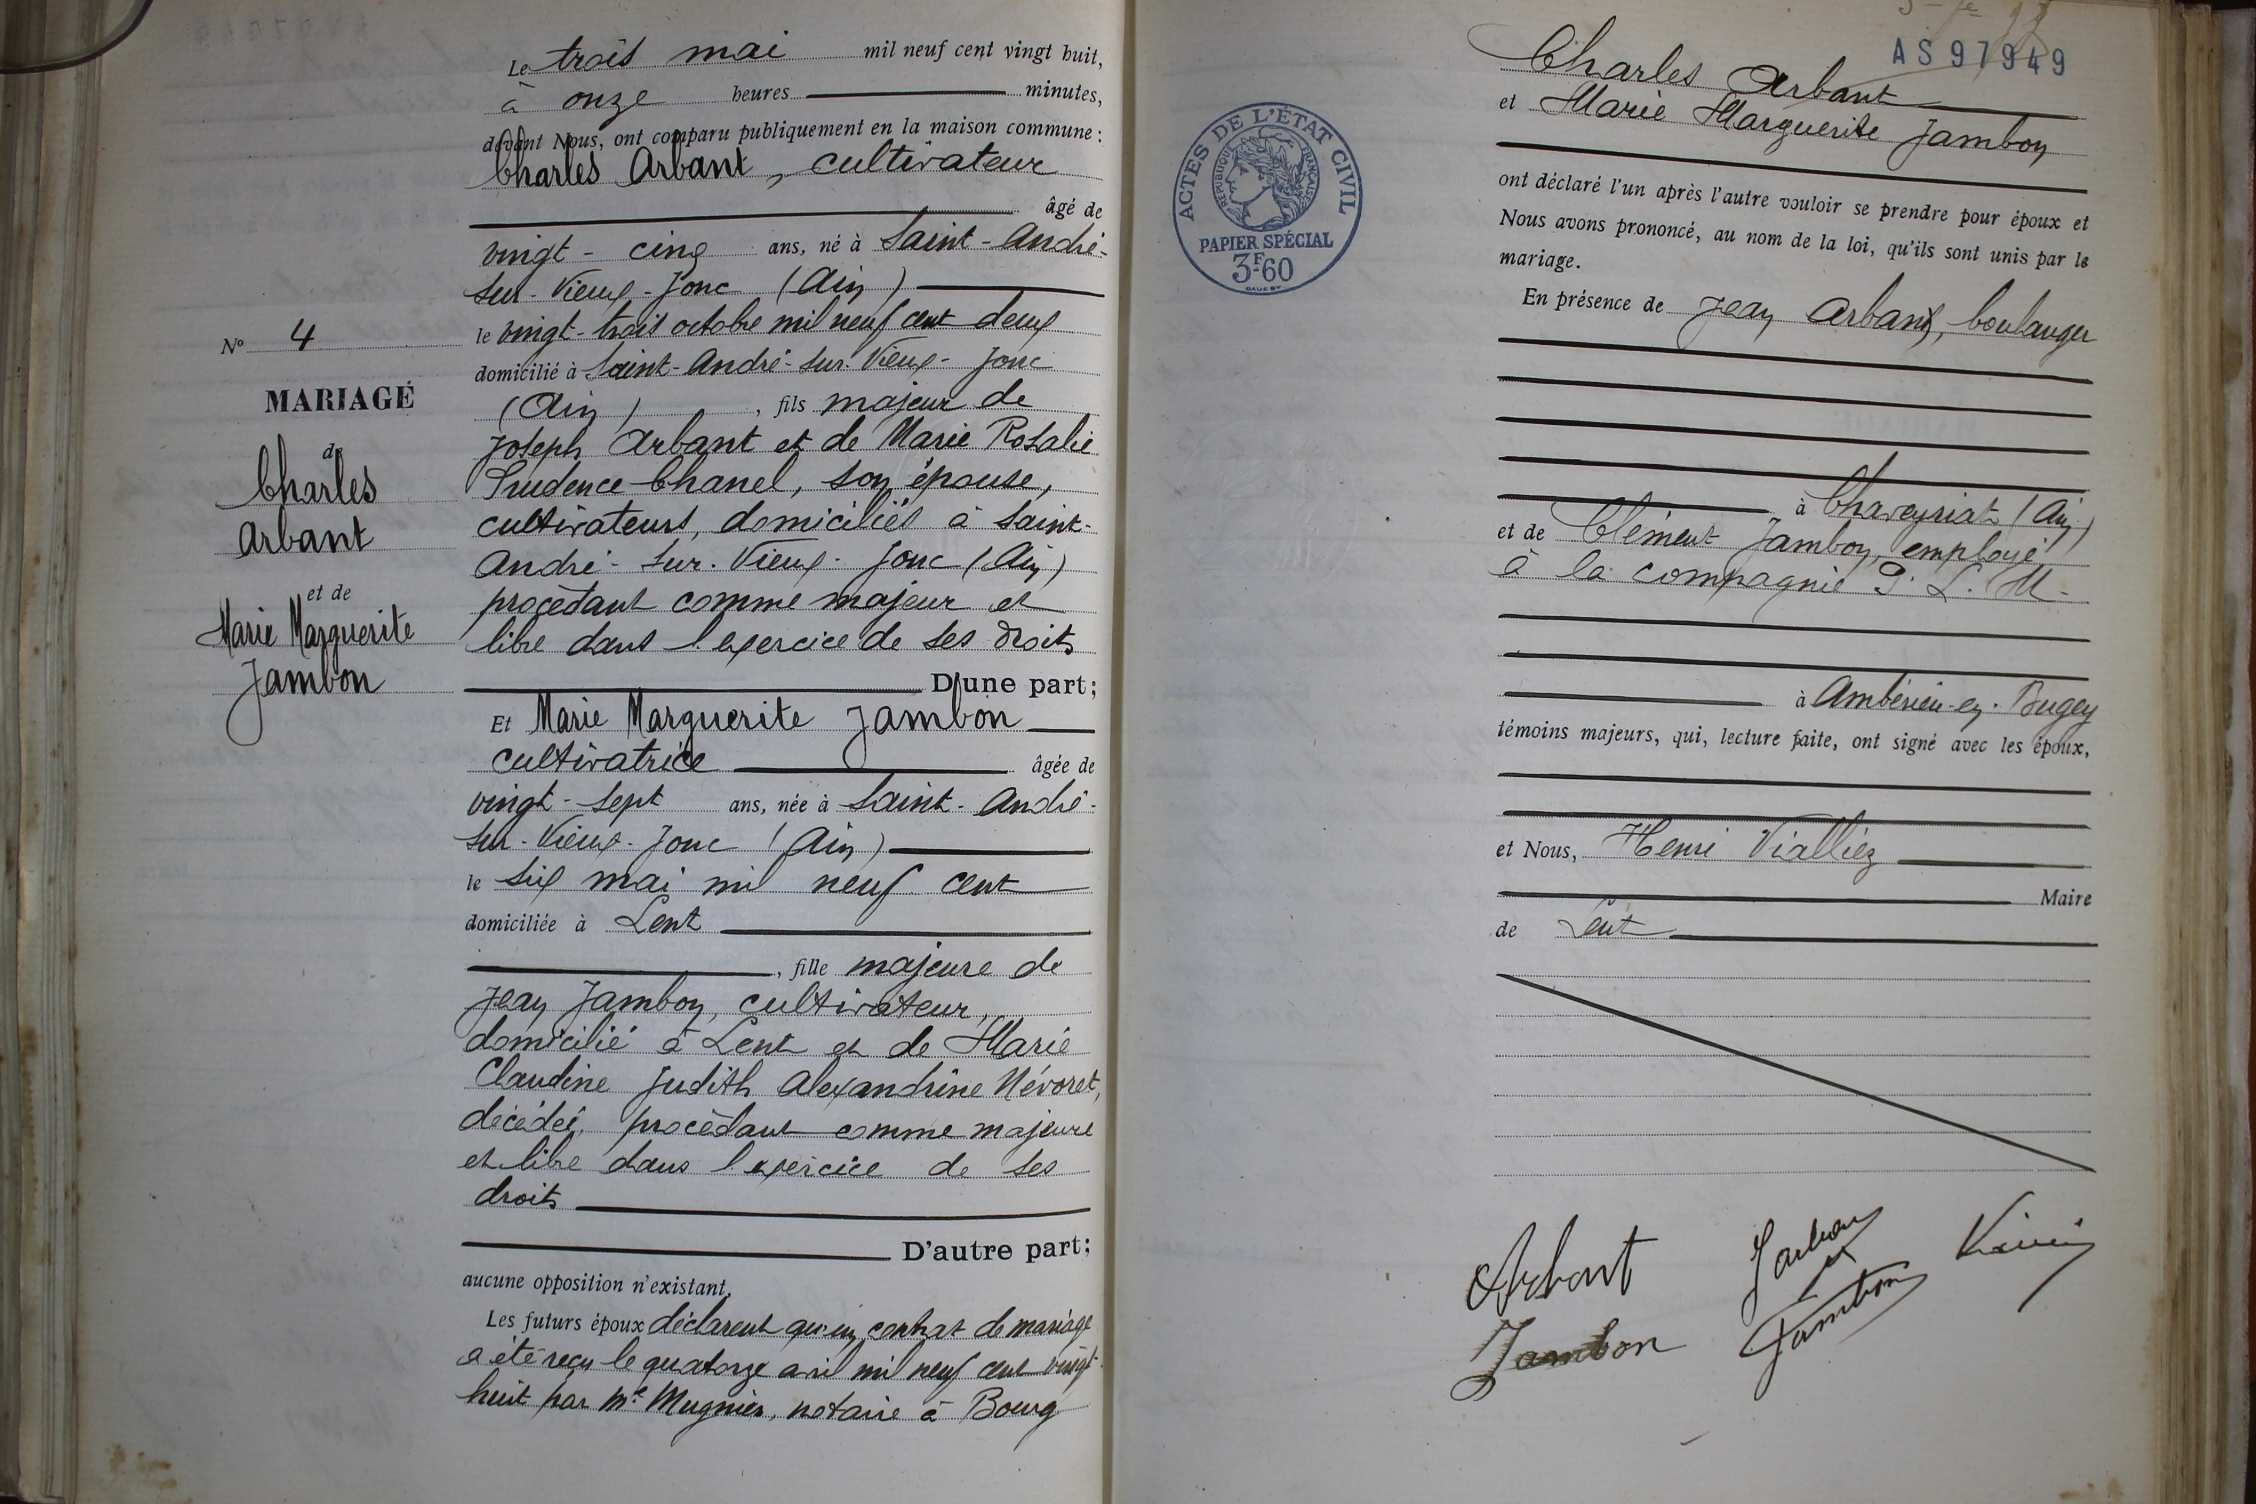 Le trois mai mil neuf cent vingt huit,
à onze heures minutes,
devant Nous, ont comparu publiquement en la maison commune :
Charles Arbant, cultivateur
âgé de
vingt-cinq ans, né à Saint-André-
sur-Vieux-Jonc (Ain)
le vingt-trois octobre mil neuf cent deux
domicilié à Saint-André-sur-Vieux-Jonc
(Ain), fils majeur de
Joseph Arbant et de Marie Rosalie
Prudence Chanel, son épouse,
cultivateurs, domiciliés à Saint-
André-sur-Vieux-Jonc (Ain)
procèdant comme majeur et
libre dans l'exercice de ses droits
D'une part;
Et Marie Marguerite Jambon
cultivatrice âgée de
vingt-sept ans, née à Saint-André-
sur-Vieux-Jonc (Ain)
le six mai mil neuf cent
domiciliée à Lent
, fille majeure de
Jean Jambon, cultivateur,
domicilié à Lent et de Marie
Claudine Judith Alexandrine Névoret,
décédée, procèdant comme majeure
et libre dans l'exercice de ses
droits
D'autre part;
aucune opposition n'existant.
Les futurs époux déclarent qu'un contrat de mariage
a été reçu le quatorze avril mil neuf cent vingt-
huit par Me Mugnier, notaire à Bourg
No 4
MARIAGE
de
Charles
Arbant
et de
Marie Marguerite
Jambon
AS 97949
ACTES DE L'ÉTAT CIVIL
RÉPUBLIQUE FRANÇAISE
PAPIER SPÉCIAL
3F60
Charles Arbant
et Marie Marguerite Jambon
ont déclaré l'un après l'autre vouloir se prendre pour époux et
Nous avons prononcé, au nom de la loi, qu'ils sont unis par le
mariage.
En présence de Jean Arbant, boulanger
à Chaveyriat (Ain)
et de Clément Jambon, employé
à la compagnie P. L. M.
à Ambérieu-en-Bugey
témoins majeurs, qui, lecture faite, ont signé avec les époux,
et Nous, Henri Vialliez
Maire
de Lent
Arbant
Jambon
Jambon